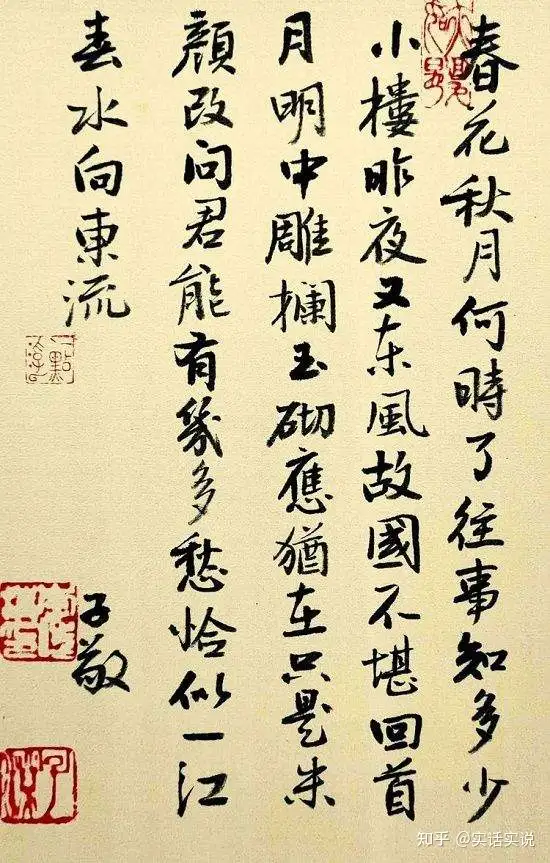 春花秋月何時了往事知多少
小樓昨夜又东風故國不堪回首
月明中雕欄玉砌應猶在只是朱
顏改问君能有幾多愁恰似一江
春水向東流
子敬
知乎 @实话实说